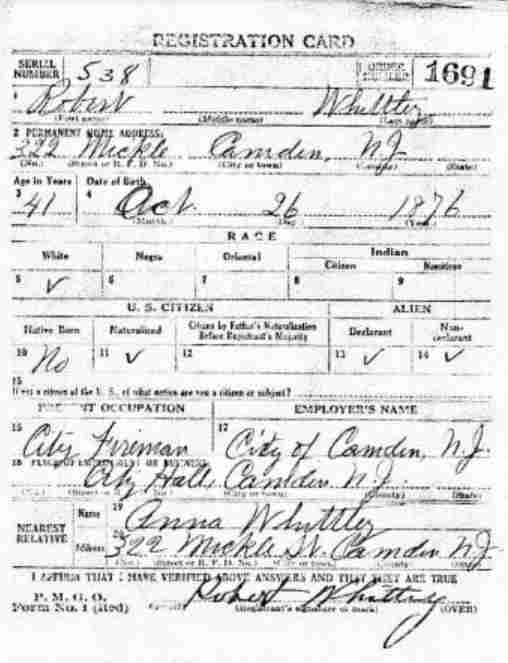 REGISTRATION CARD
SERIAL NUMBER 538 ORDER NUMBER 1691
1 Robert Whittley
(First name) (Middle name) (Last name)
2 PERMANENT HOME ADDRESS:
322 Mickle Camden, NJ
(No.) (Street or R. F. D. No.) (City or town) (County) (State)
Age in Years Date of Birth
3 41 4 Oct. 26 1876
(Month.) (Day.) (Year.)
RACE
White Negro Oriental Indian
Citizen Noncitizen
5 ✓ 6 7 8 9
U. S. CITIZEN ALIEN
Native Born Naturalized Citizen by Father's Naturalization Before Registrant's Majority Declarant Non-declarant
10 No 11 ✓ 12 13 ✓ 14 ✓
15
If not a citizen of the U. S., of what nation are you a citizen or subject?
PRESENT OCCUPATION EMPLOYER'S NAME
16 City Fireman 17 City of Camden, N.J.
18 PLACE OF EMPLOYMENT OR BUSINESS
City Hall Camden N.J
(No.) (Street or R. F. D. No.) (City or town) (County) (State)
NEAREST RELATIVE
Name 19 Anna Whittley
Address 20 322 Mickle St. Camden N.J
(No.) (Street or R. F. D. No.) (City or town) (County) (State)
I AFFIRM THAT I HAVE VERIFIED ABOVE ANSWERS AND THAT THEY ARE TRUE
P. M. G. O.
Form No. 1 (Red) Robert Whittley
(Registrant's signature or mark) (OVER)